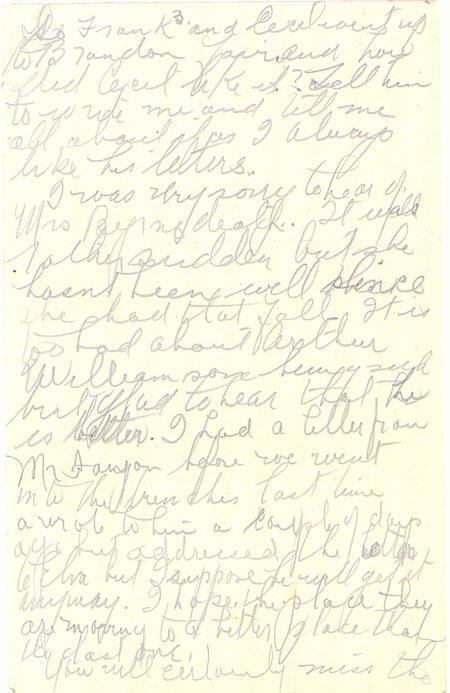 So Frank and Cecil went up
to Brandon fair and how
did Cecil like it? Tell him
to write me and tell me
all about it as I always
like his letters.
I was very sorry to hear of
Mrs death. It was
rather sudden but she
hasnt been well since
she had that fall. It is
too bad about Arthur
Williamson being sick
but glad to hear that he
is better. I had a letter from
Mr before we went
into the trenches last time
wrote to him a couple of days
ago but addressed the letter
to but I suppose he will get it
anyway. I hope the place they
are moving to a better place than
the last one.
You will certainly miss the